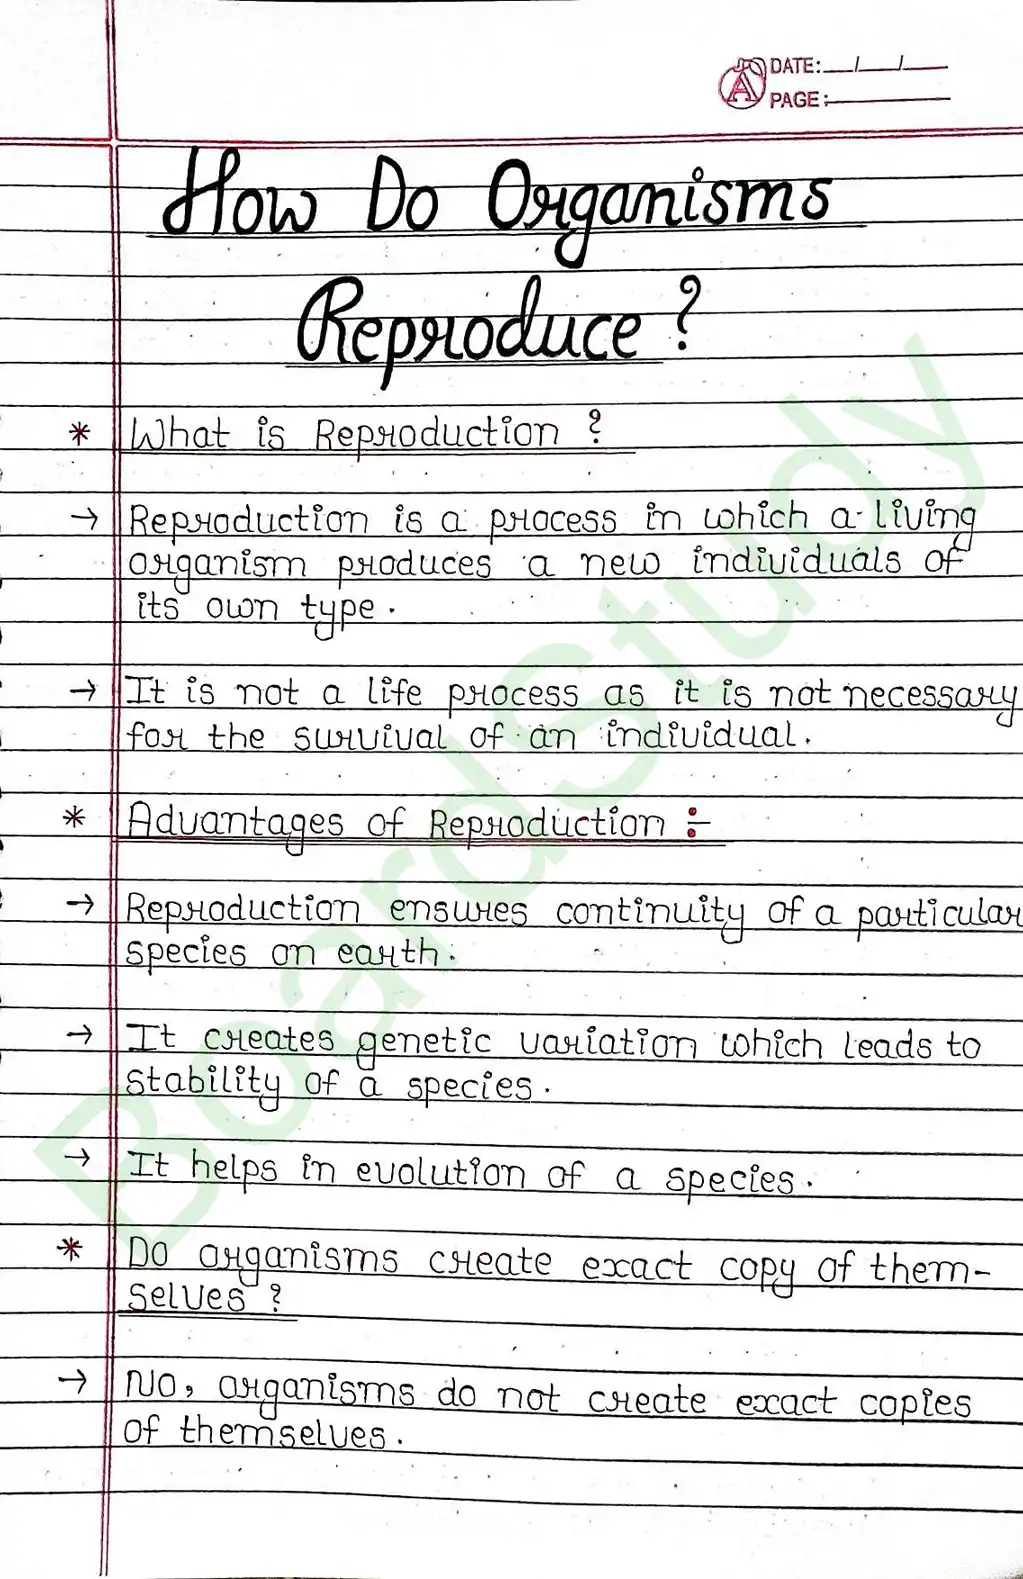 DATE: __/__/__
PAGE:
How Do Organisms
Reproduce ?
* What is Reproduction ?
→ Reproduction is a process in which a living
organism produces a new individuals of
its own type.
→ It is not a life process as it is not necessary
for the survival of an individual.
* Advantages of Reproduction :-
→ Reproduction ensures continuity of a particular
species on earth.
→ It creates genetic variation which leads to
stability of a species.
→ It helps in evolution of a species.
* Do organisms create exact copy of them-
selves ?
→ No, organisms do not create exact copies
of themselves.
BoardStudy